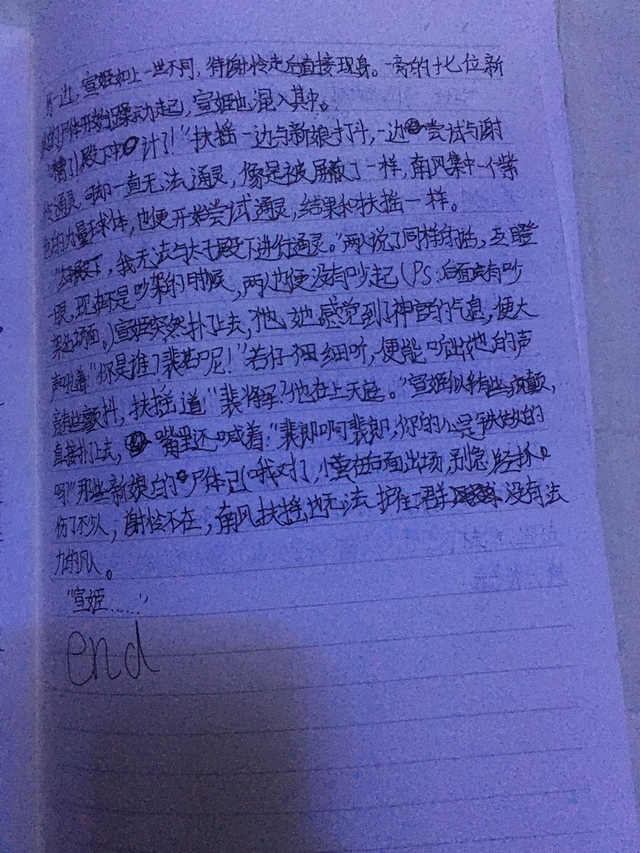 另一边，宣姬和上一世不同，待谢怜走后直接现身。一旁的十七位新
娘的尸体开始躁动起，宣姬也混入其中。
"糟了！殿下中计了！"扶摇一边与新娘打斗，一边尝试与谢
怜通灵，却一直无法通灵，像是被屏蔽了一样，南风集中一个紫
色的力量球体，也便开始尝试通灵，结果和扶摇一样。
"，我无法与太子殿下进行通灵。"两人说了同样的话，互瞪
一眼，现在不是吵架的时候，两人也便没有吵起（Ps：后面会有吵
架名场面。）宣姬突然扑上去，他，她感觉到了神官的气息，便大
声吼着"你是裴君呢！"若仔细细听，便能听出她的声
音有些颤抖，扶摇道"裴将军？他在上天庭。"宣姬似有些疯颠，
直接扑上去，嘴里还喊着："裴郎啊裴郎，你的心是铁做的
吗"那些新娘的尸体已（哦对了，小萤在后面出场，别急）
伤了不少人，谢怜不在，南风扶摇也无法护住一群没有法
力的凡人。
"宣姬……"
end